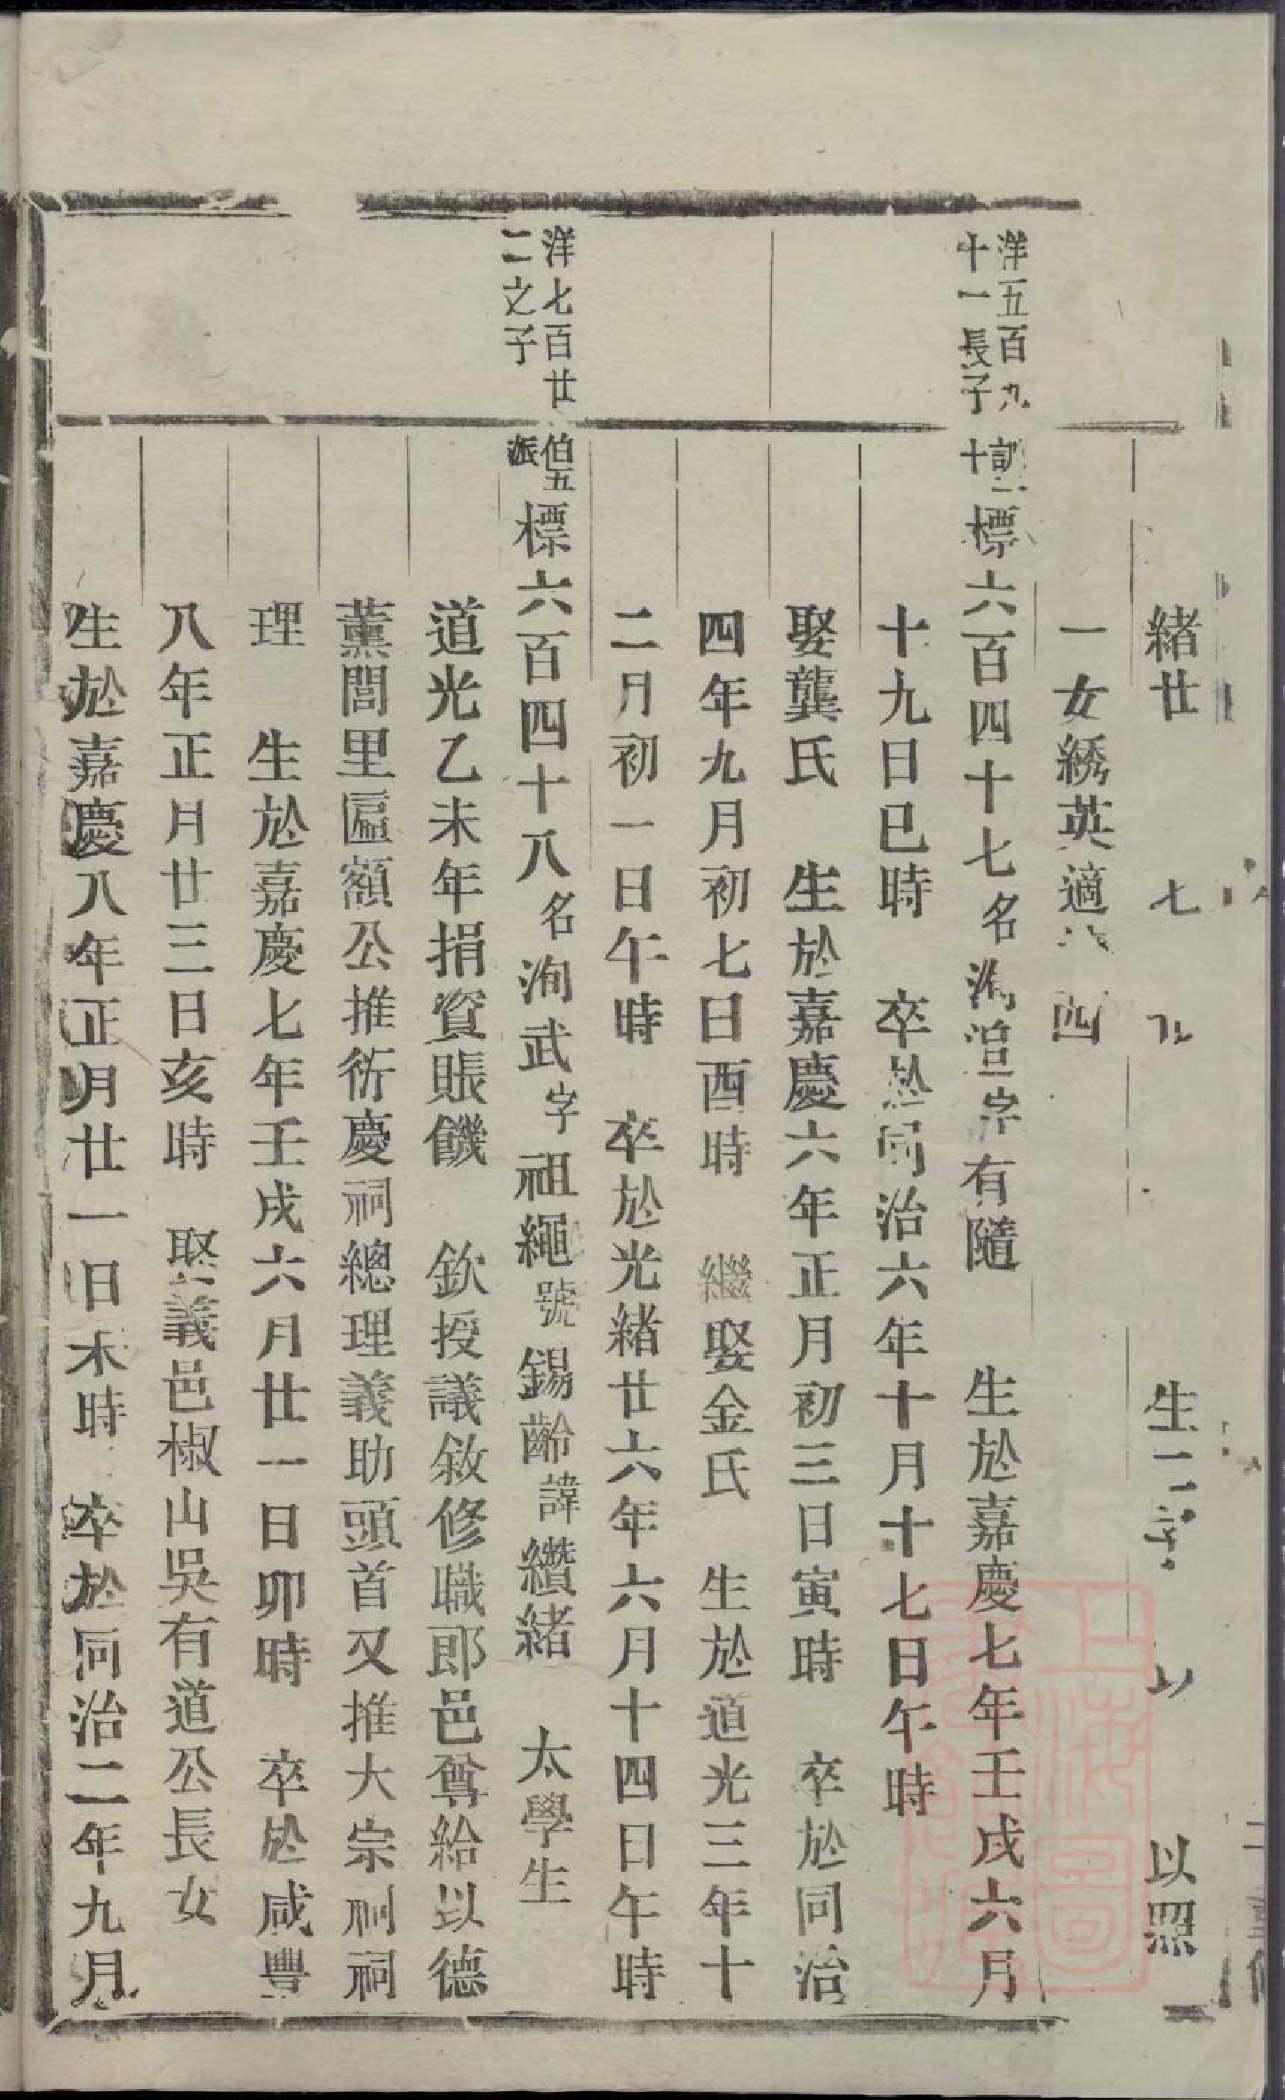 緒廿 七 生二子 以照
一女綉英適 四
洋五百九
十一長子
十 標六百四十七名 字有隨 生於嘉慶七年壬戌六月
十九日巳時 卒於同治六年十月十七日午時
娶龔氏 生於嘉慶六年正月初三日寅時 卒於同治
四年九月初七日酉時 繼娶金氏 生於道光三年十
二月初一日午時 卒於光緒廿六年六月十四日午時
洋七百廿
二之子
伯五
派 標六百四十八名洵武字祖繩號錫齡諱纘緒 太學生
道光乙未年捐資賬饑 欽授議敘修職郎邑尊給以德
薰閭里匾額公推衍慶祠總理義助頭首又推大宗祠祠
理 生於嘉慶七年壬戌六月廿一日卯時 卒於咸豐
八年正月廿三日亥時 娶義邑椒山吳有道公長女
生於嘉慶八年正月廿一日木時 卒於同治二年九月